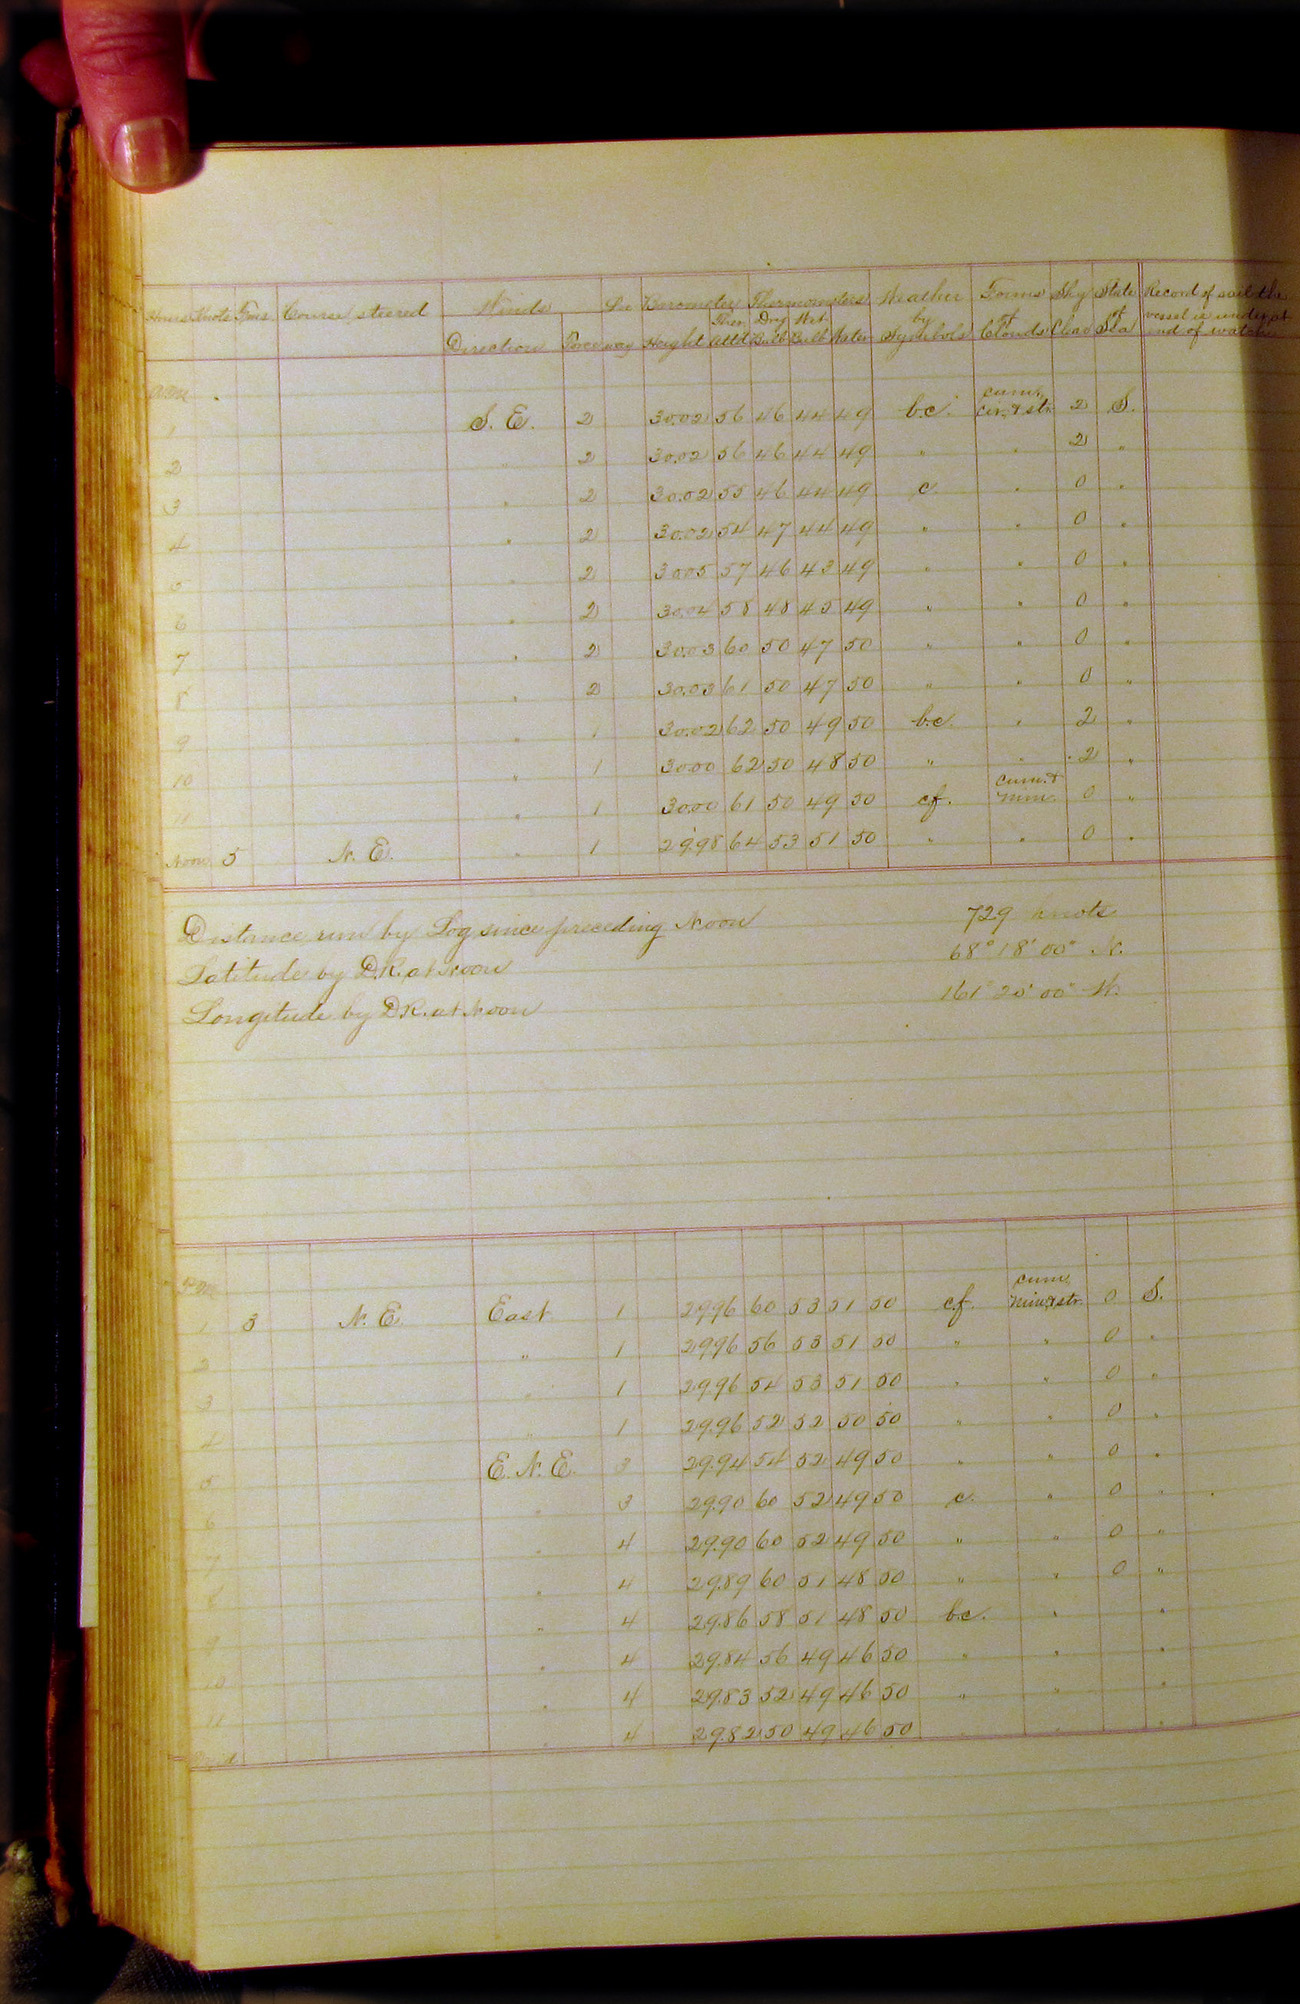 Hours Knots Tens Course steered Winds Lee Barometer Thermometers Weather Forms Sky State Record of sail the
Direction Force way Height Ther. Att'd Dry Bulb Wet Bulb Water by Symbols of Clouds Clear of Sea vessel is under at end of watch
A.M.
1 S. E. 2 30.02 56 46 44 49 b.c. cum. cir. & str. 2 S.
2 " 2 30.02 56 46 44 49 " " 2 "
3 " 2 30.02 55 46 44 49 c. " 0 "
4 " 2 30.02 54 47 44 49 " " 0 "
5 " 2 30.05 57 46 43 49 " " 0 "
6 " 2 30.04 58 48 45 49 " " 0 "
7 " 2 30.03 60 50 47 50 " " 0 "
8 " 2 30.03 61 50 47 50 " " 0 "
9 " 1 30.02 62 50 49 50 b.c. " 2 "
10 " 1 30.00 62 50 48 50 " " 2 "
11 " 1 30.00 61 50 49 50 c.f. cum. & nim. 0 "
Noon 5 N. E. " 1 29.98 64 53 51 50 " " 0 "
Distance run by Log since preceding Noon 729 knots
Latitude by D.R. at Noon 68° 18' 00" N.
Longitude by D.R. at Noon 161° 20' 00" W.
P.M.
1 3 N. E. East 1 29.96 60 53 51 50 c.f. cum. nim. & str. 0 S.
2 " 1 29.96 56 53 51 50 " " 0 "
3 " 1 29.96 54 53 51 50 " " 0 "
4 " 1 29.96 52 52 50 50 " " 0 "
5 E. N. E. 3 29.94 54 52 49 50 " " 0 "
6 " 3 29.90 60 52 49 50 c. " 0 "
7 " 4 29.90 60 52 49 50 " " 0 "
8 " 4 29.89 60 51 48 50 " " 0 "
9 " 4 29.86 58 51 48 50 b.c. " "
10 " 4 29.84 56 49 46 50 " " "
11 " 4 29.83 52 49 46 50 " " "
" 4 29.82 50 49 46 50 " " "